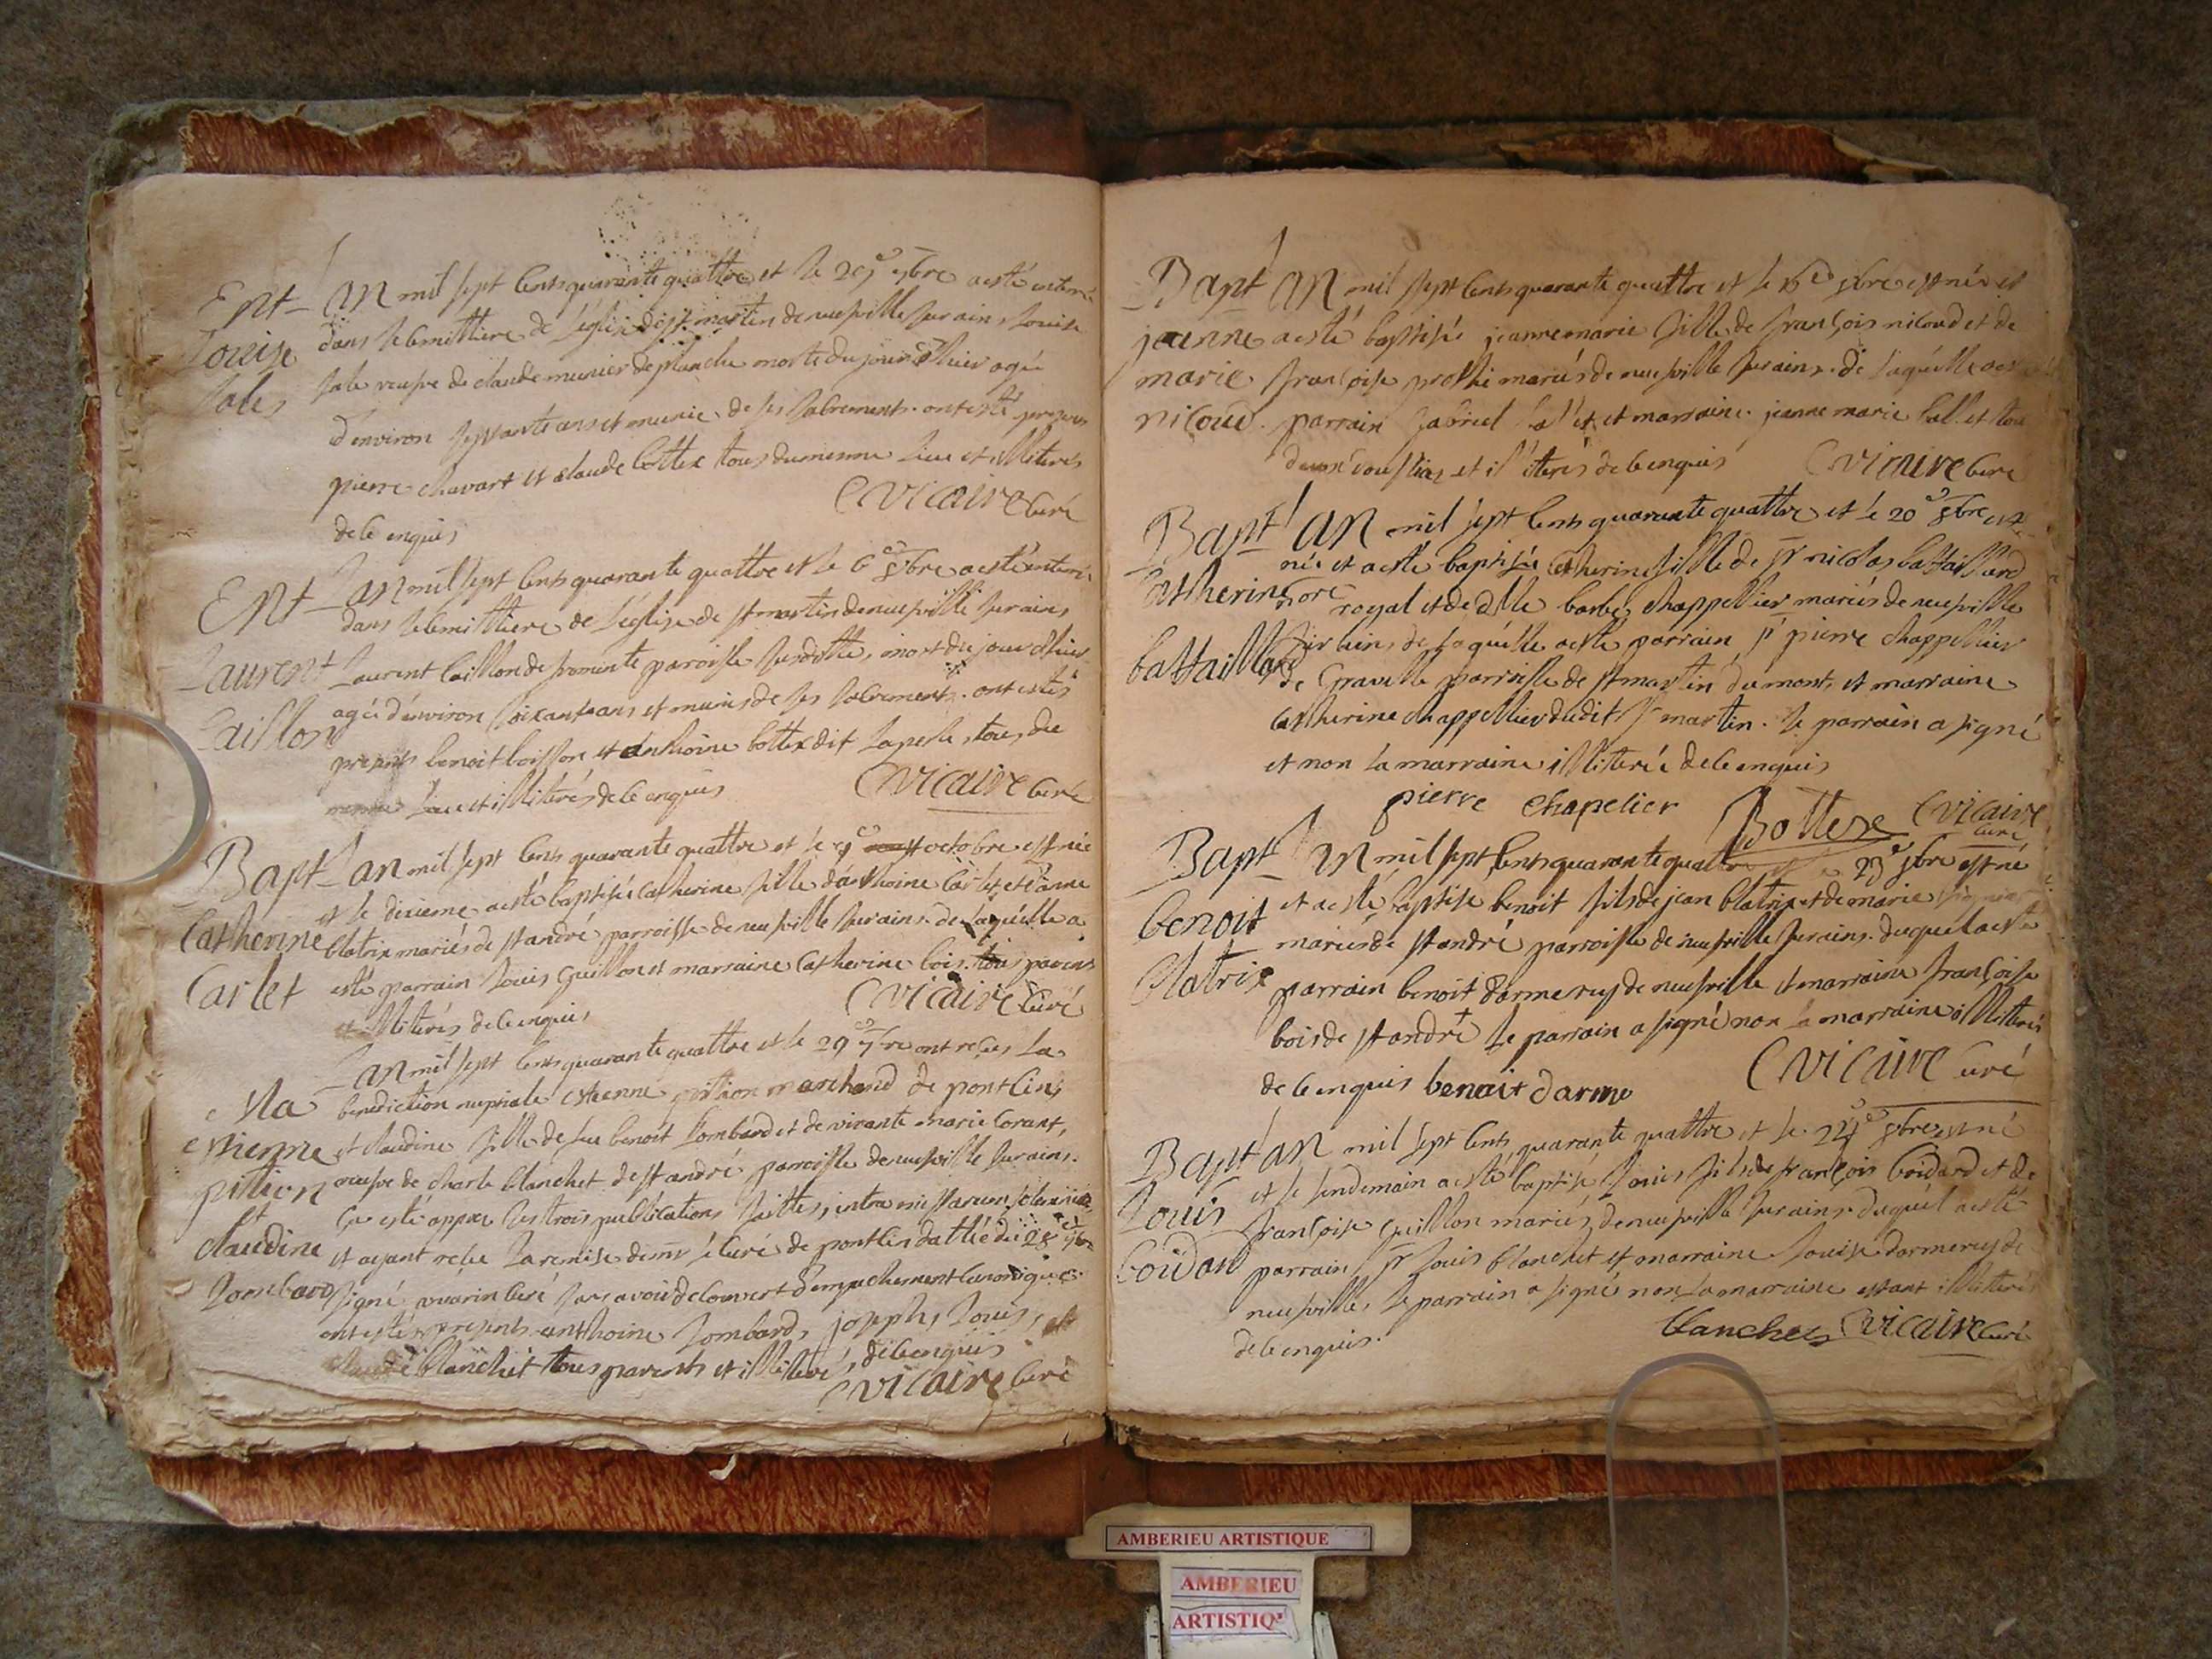 Ent
Louise
Sales
L'an mil sept cents quarante quattre et le 29e 7bre a esté enterré
dans le cemittiere de l'eglise de st martin de neufville sur ains, Louise
sale veufve de claude munier de planche morte du jour d'hier agée
d'environ septante ans et munie de ses sacrements. ont esté presents
pierre chavart et claude bottex tous du mesme lieu et illiterés
de ce enquis
C vicaire curé
Ent
Laurent
Caillon
L'an mil sept cents quarante quattre et le 6e 8bre a esté enterré
dans le cemittiere de l'eglise de st martin de neufville sur ains,
Laurent caillon de fromente paroisse susditte, mort du jour d'hier
agé d'environ soixante ans et munis de ses sacrements. ont estés
presents benoit boisson et anthoine bottex dit laperle, tous du
mesme lieu et illiterés de ce enquis
C vicaire curé
Bapt
Catherine
Carlet
L'an mil sept cents quarante quattre et le 9e octobre est née
et le dixieme a esté baptisée catherine fille d'anthoine carlet et d'anne
blatrix mariés de st andré parroisse de neufville sur ains. de laquelle a
esté parrain Louis Guillon et marraine Catherine bois. tous parens
et illiterés de ce enquis
C vicaire curé
Ma
estienne
pition
et
claudine
Lombard
L'an mil sept cents quarante quattre et le 29 7bre ont receu la
benediction nuptiale estienne pition marchand de pontlins
et claudine fille de feu benoit Lombard et de vivante marie Corant,
veufve de charle blanchet de st andré parroisse de neufville sur ains.
ça esté apprez les trois publications faittes, intra missarum solemnia
et ayant receu la remise de mr le curé de pontlin dattée du 28e 7bre
signé curé sans avoir decouvert d'empechement canonique
ont estés presents anthoine Lombard, joseph, Louis, et
claude blanchet tous parents et illiterés, de ce enquis
C vicaire curé
Bapt
jeanne
marie
nicoud
L'an mil sept cents quarante quattre et le 16e 8bre est née et
a esté baptisée jeanne marie fille de françois nicoud et de
françoise prosthi mariés de neufville sur ains. de laquelle a esté
parrain Gabriel ballet et marraine jeanne marie ballet tous
deux et illiterés de ce enquis
C vicaire curé
Bapt
Catherine
battaillard
L'an mil sept cents quarante quattre et le 20e 8bre est
née et a esté baptisée Catherine fille de sr nicolas battaillard
nore royal et de dlle barbe chappellier mariés de neufville
sur ains, de laquelle a esté parrain sr pierre chappellier
de Gravelle parroisse de st martin du mont, et marraine
catherine chappellier dudit st martin. le parrain a signé
et non la marraine illiterée de ce enquis
pierre chapelier Bottex C vicaire
curé
Bapt
benoit
blatrix
L'an mil sept cents quarante quattre et le 23e 8bre est né
et a esté baptisé benoit fils de jean blatrix et de marie
mariés de st andré parroisse de neufville sur ains. duquel a esté
parrain benoit darmerey de neufville et marraine françoise
bois de st andré le parrain a signé non la marraine illiterés
de ce enquis benoit darme
C vicaire curé
Bapt
Louis
boidard
L'an mil sept cents quarante quattre et le 24e 8bre est né
et le lendemain a esté baptisé Louis fils de françois boidard et de
françoise Guillon mariés de neufville sur ains. duquel a esté
parrain sr Louis blanchet et marraine Louise darmerey de
neufville, le parrain a signé non la marraine estant illiterée
de ce enquis.
blanchet C vicaire curé
AMBERIEU ARTISTIQUE
AMBERIEU
ARTISTIQ